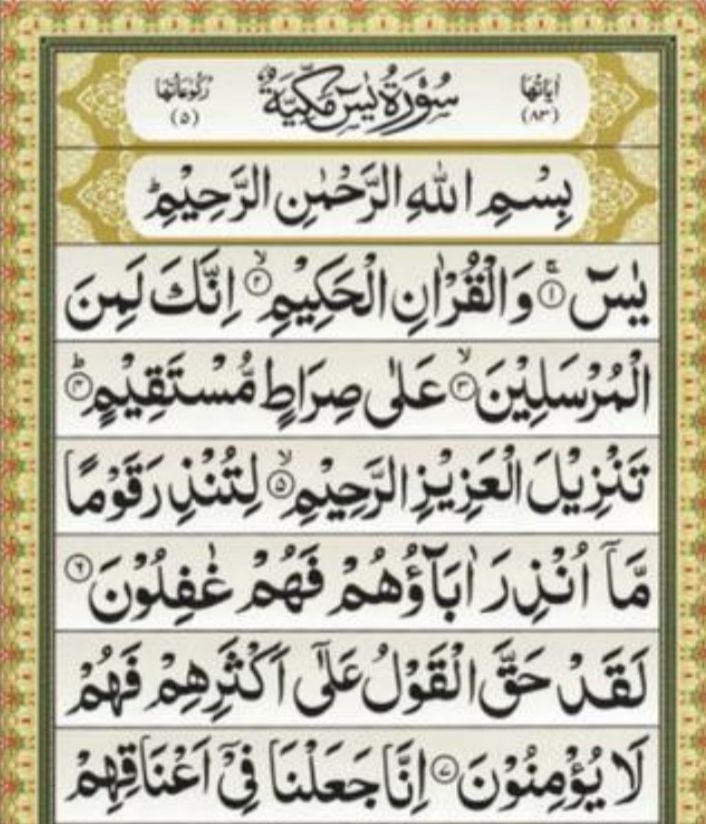 اٰیَاتُهَا (۸۳) سُوْرَةُ یٰسٓ مَکِّیَّةٌ رُکُوْعَاتُهَا (۵)
بِسْمِ اللهِ الرَّحْمٰنِ الرَّحِیْمِ ؕ
یٰسٓ ۚ﴿۱﴾ وَالْقُرْاٰنِ الْحَکِیْمِ ۙ﴿۲﴾ اِنَّکَ لَمِنَ
الْمُرْسَلِیْنَ ۙ﴿۳﴾ عَلٰی صِرَاطٍ مُّسْتَقِیْمٍ ؕ﴿۴﴾
تَنْزِیْلَ الْعَزِیْزِ الرَّحِیْمِ ۙ﴿۵﴾ لِتُنْذِرَ قَوْمًا
مَّاۤ اُنْذِرَ اٰبَآؤُهُمْ فَهُمْ غٰفِلُوْنَ ﴿۶﴾
لَقَدْ حَقَّ الْقَوْلُ عَلٰۤی اَکْثَرِهِمْ فَهُمْ
لَا یُؤْمِنُوْنَ ﴿۷﴾ اِنَّا جَعَلْنَا فِیْۤ اَعْنَاقِهِمْ